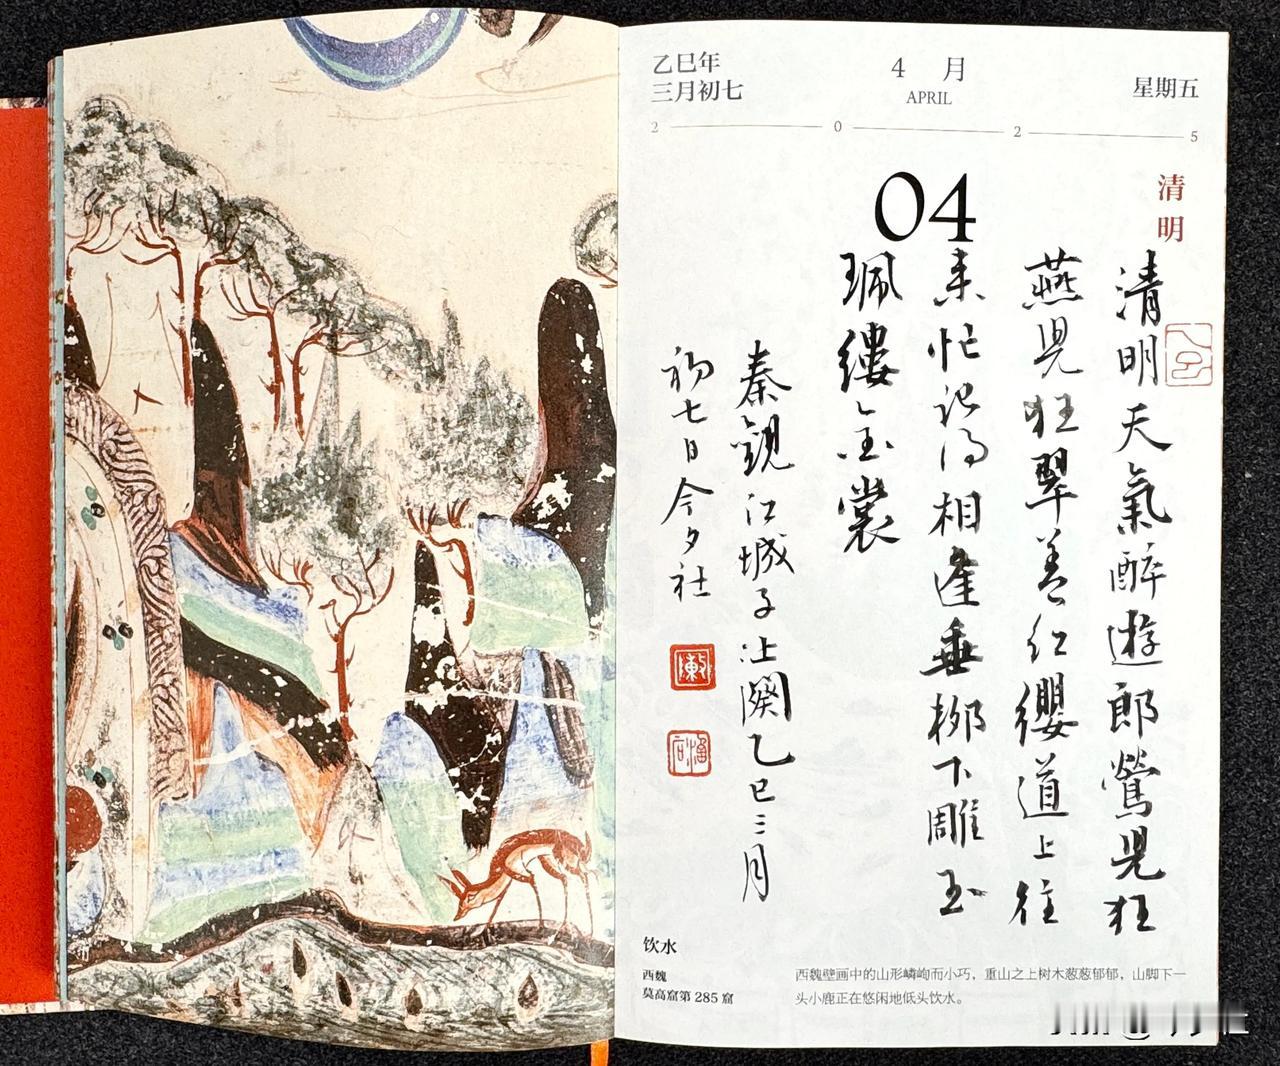 乙巳年
三月初七
4 月
APRIL
星期五
2 0 2 5
04
清明
清明天氣醉遊郎鶯兒狂
燕兒狂翠蓋紅纓道上往
来忙記得相逢垂柳下雕玉
珮縷金裳
秦觀江城子上闋乙巳三月
初七日今夕社
饮水
西魏
莫高窟第 285 窟
西魏壁画中的山形嶙峋而小巧，重山之上树木葱葱郁郁，山脚下一
头小鹿正在悠闲地低头饮水。